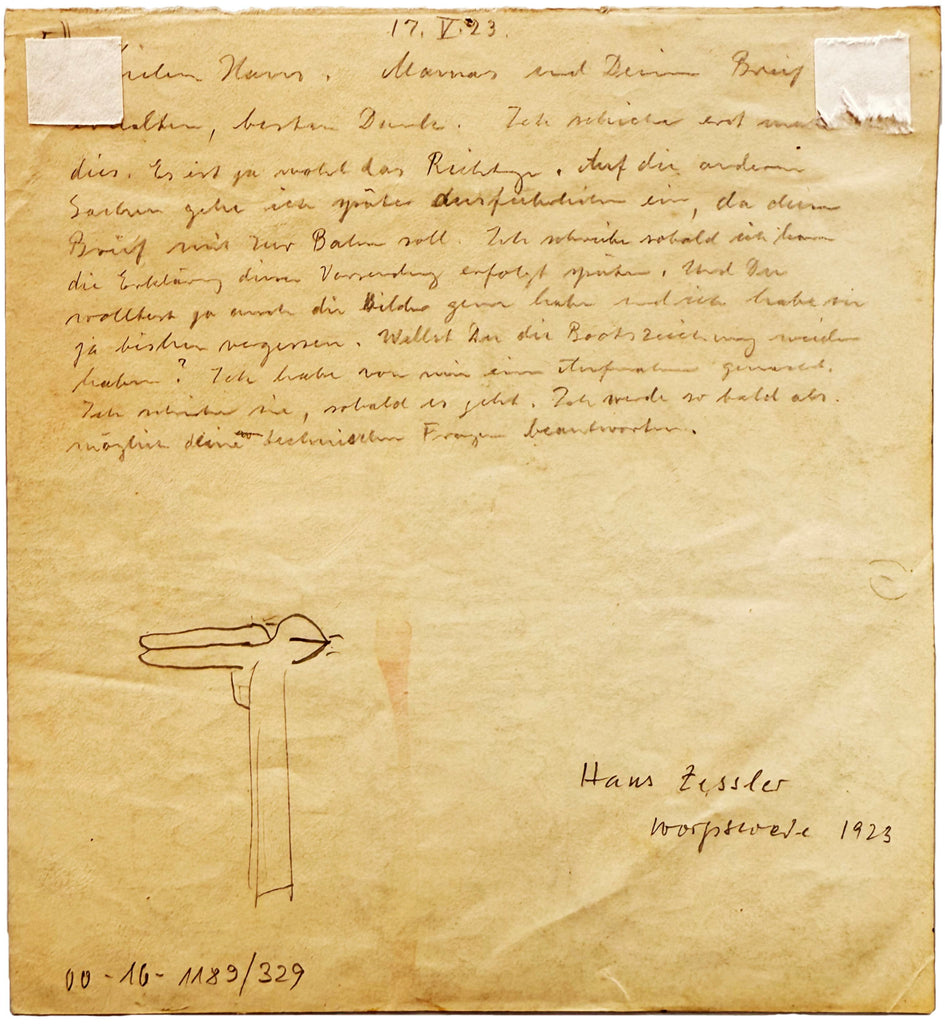 17. V. 23.
Hans. Mamas und Deinen Brief
erhalten, besten Dank. Ich schicke erst mal
dies. Es ist ja wohl das Richtige. Auf die anderen
Sachen gehe ich später ausführlicher ein, da dieser
Brief mit zur Bahn soll. Ich schreibe sobald ich kann
die Erklärung dieser erfolgt später. Und Du
wolltest ja auch die Bilder gerne haben und ich habe sie
ja bisher vergessen. Willst Du die Bootszeichnung wieder
haben? Ich habe von mir eine Aufnahme gemacht.
Ich schicke sie, sobald es geht. Ich werde so bald als
möglich deine technischen Fragen beantworten.
Hans
Worpswede 1923
00-16-1189/329